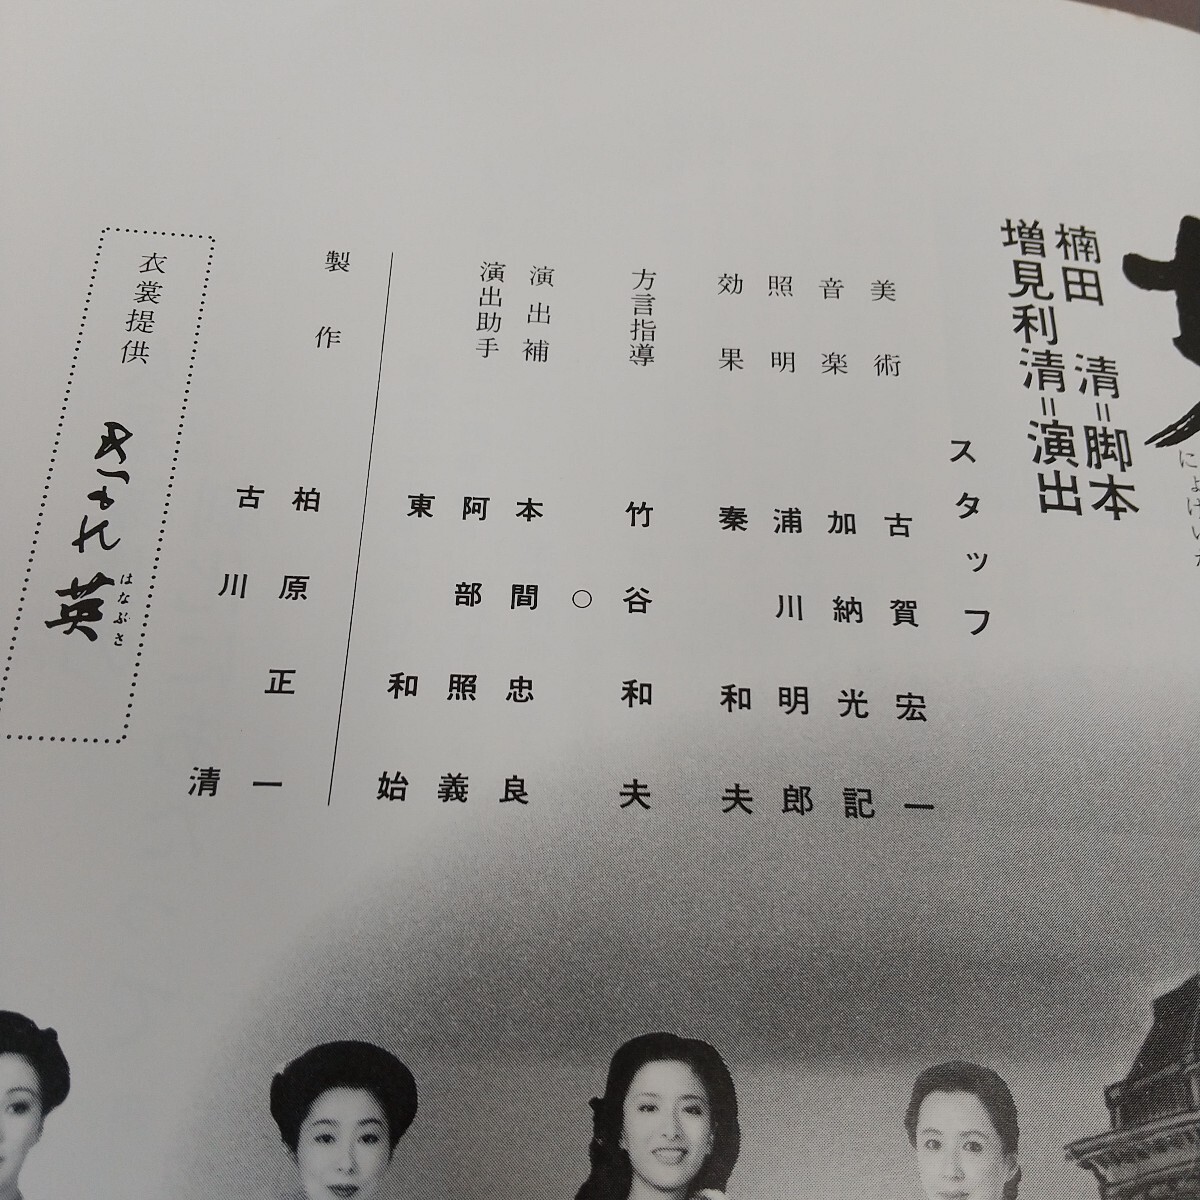 にょけいか
楠田 清＝脚本
増見利清＝演出
スタッフ
美術 古賀宏一
音楽 加納光記
照明 浦川明郎
効果 秦 和夫
方言指導 竹谷和夫
○
演出補 本間忠良
演出助手 阿部照義
東 和始
製作 柏原正一
古川 清
衣裳提供 きもの英
はなぶさ